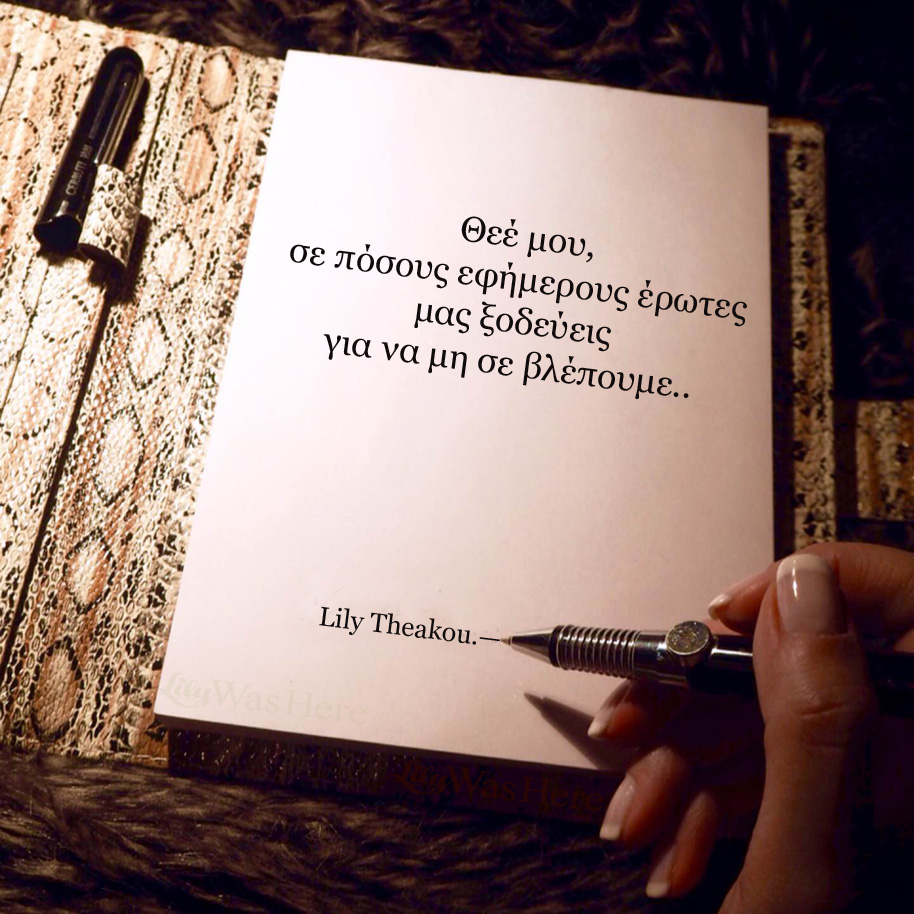 CERRUTI 1881
Θεέ μου,
σε πόσους εφήμερους έρωτες
μας ξοδεύεις
για να μη σε βλέπουμε..
Lily Theakou.—
LilyWasHere
LilyWasHere